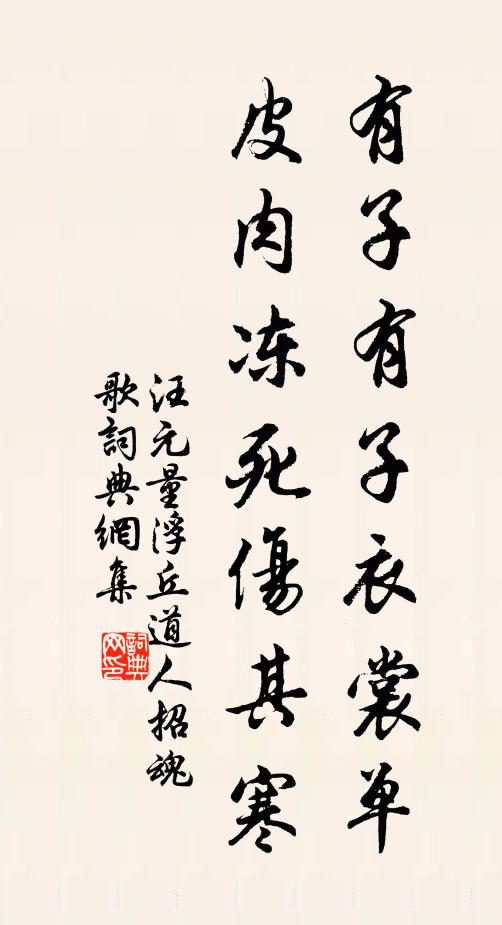 有子有子衣裳单
皮肉冻死傷其寒
汪元量浮丘道人招魂
歌詞典網集
詞典网印